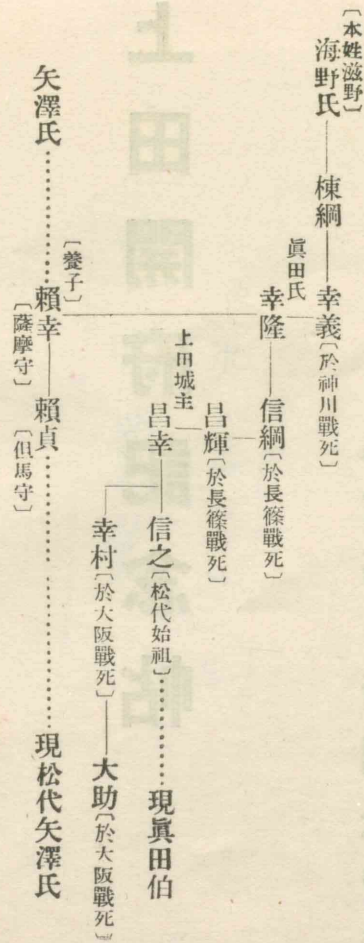 〔本姓滋野〕
海野氏――棟綱――幸義〔於神川戰死〕
眞田氏
幸隆――信綱〔於長篠戰死〕
昌輝〔於長篠戰死〕
上田城主
昌幸――信之〔松代始祖〕………現眞田伯
幸村〔於大阪戰死〕――大助〔於大阪戰死〕
〔養子〕
矢澤氏………賴幸――賴貞………現松代矢澤氏
〔薩摩守〕〔但馬守〕